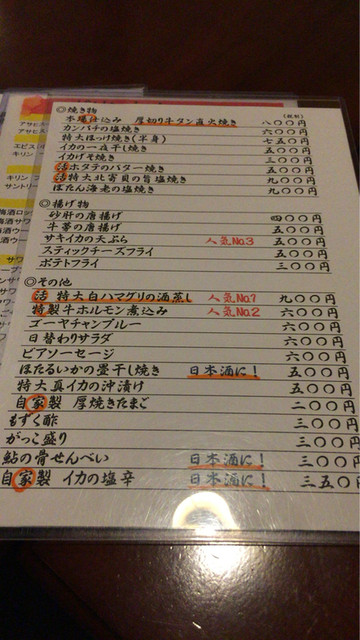 ◎焼き物 (税別)
本場仕込み 厚切り牛タン直火焼き 八〇〇円
カンパチの塩焼き 六〇〇円
特大ほっけ焼き(半身) 七五〇円
イカの一夜干し焼き 五〇〇円
イカげそ焼き 三〇〇円
活ホタテのバター焼き 五〇〇円
活特大北寄貝の旨塩焼き 九〇〇円
ぼたん海老の塩焼き 九〇〇円
◎揚げ物
砂肝の唐揚げ 四〇〇円
牛蒡の唐揚げ 五〇〇円
サキイカの天ぷら 人気No.3 五〇〇円
スティックチーズフライ 五〇〇円
ポテトフライ 三〇〇円
◎その他
活 特大白ハマグリの酒蒸し 人気No.1 九〇〇円
特製牛ホルモン煮込み 人気No.2 六〇〇円
ゴーヤチャンプルー 六〇〇円
日替わりサラダ 六〇〇円
ビアソーセージ 六〇〇円
ほたるいかの畳干し焼き 日本酒に! 五〇〇円
特大真イカの沖漬け 五〇〇円
自家製 厚焼きたまご 二〇〇円
もずく酢 三〇〇円
がっこ盛り 三〇〇円
鮎の骨せんべい 日本酒に! 三〇〇円
自家製 イカの塩辛 日本酒に! 三五〇円
アサヒ
アサヒス
エビス
キリン
キリン
サントリー
梅酒ロッ
梅酒ソー
梅酒水
ウー
サワ